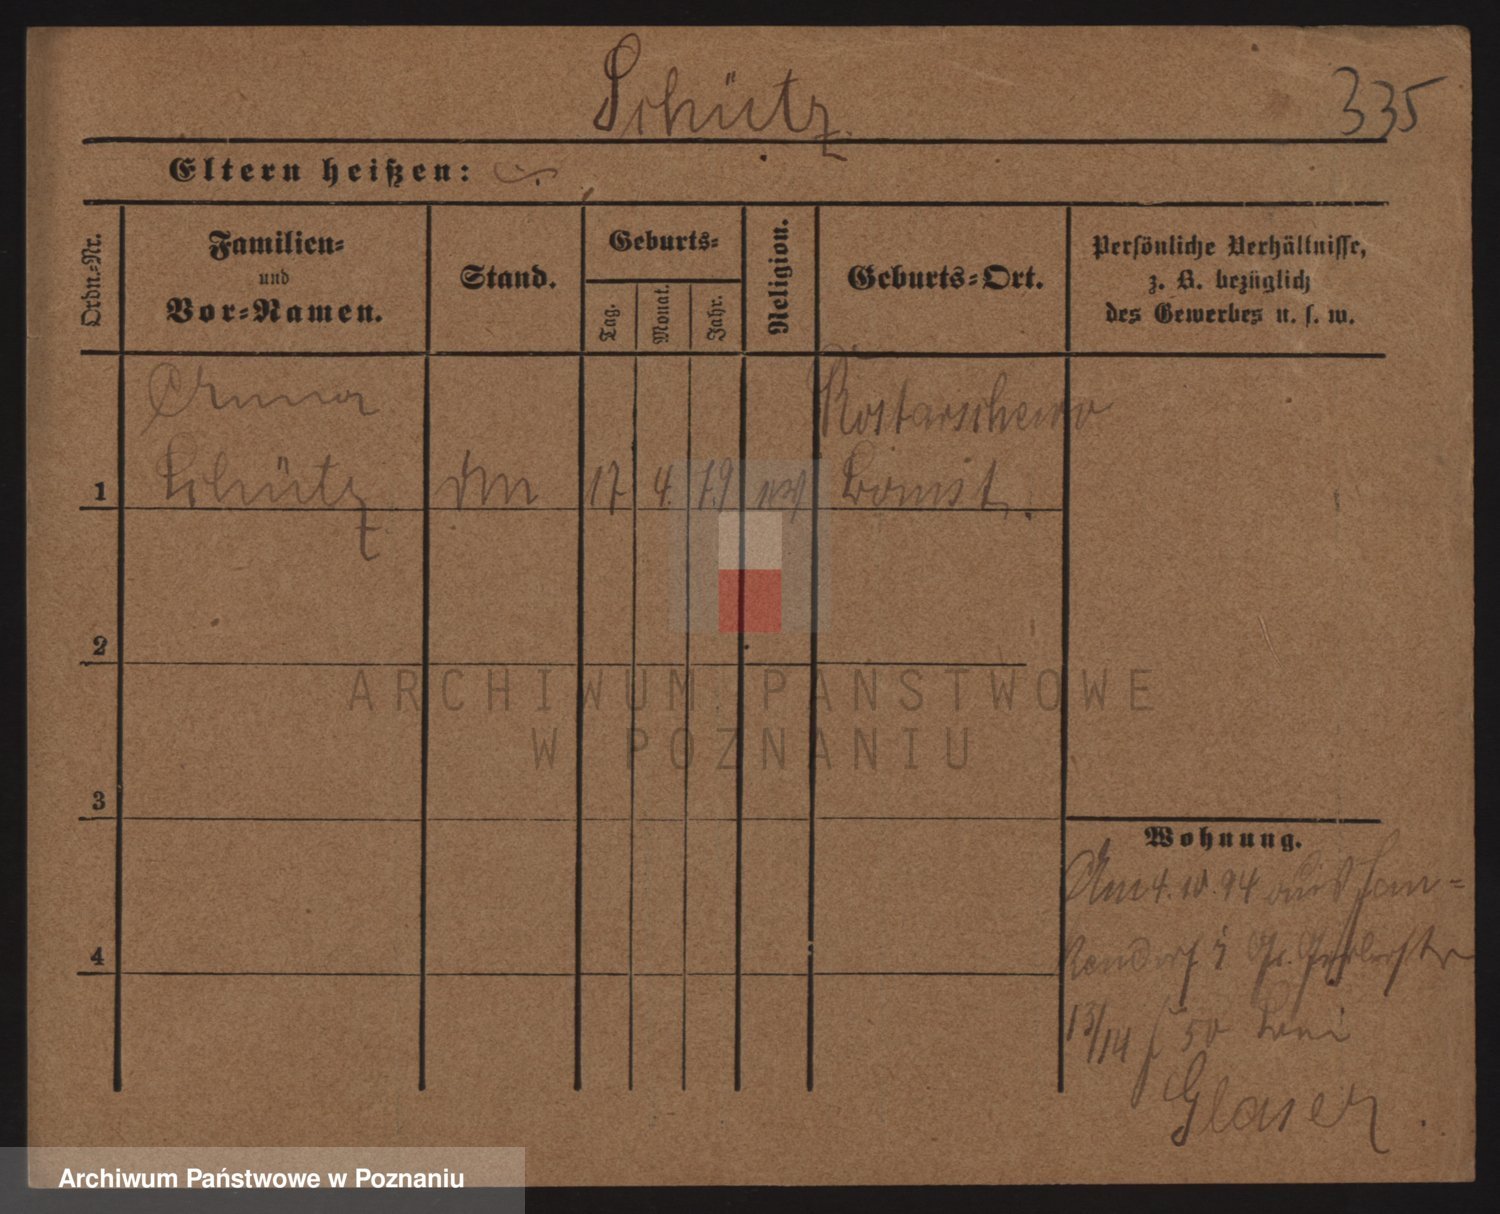 Schütz
335
Eltern heißen:
Ordn.-Nr.
Familien-
und
Vor-Namen.
Stand.
Geburts-
Tag.
Monat.
Jahr.
Religion.
Geburts-Ort.
Persönliche Verhältnisse,
z. B. bezüglich
des Gewerbes u. s. w.
Anna
Schütz
17
4.
79
ev
Rostarschewo
Bomst.
1
2
3
4
ARCHIWUM PAŃSTWOWE
W POZNANIU
Wohnung.
Am 4. 10. 94 aus
13/14 50 bei
Glaser
Archiwum Państwowe w Poznaniu